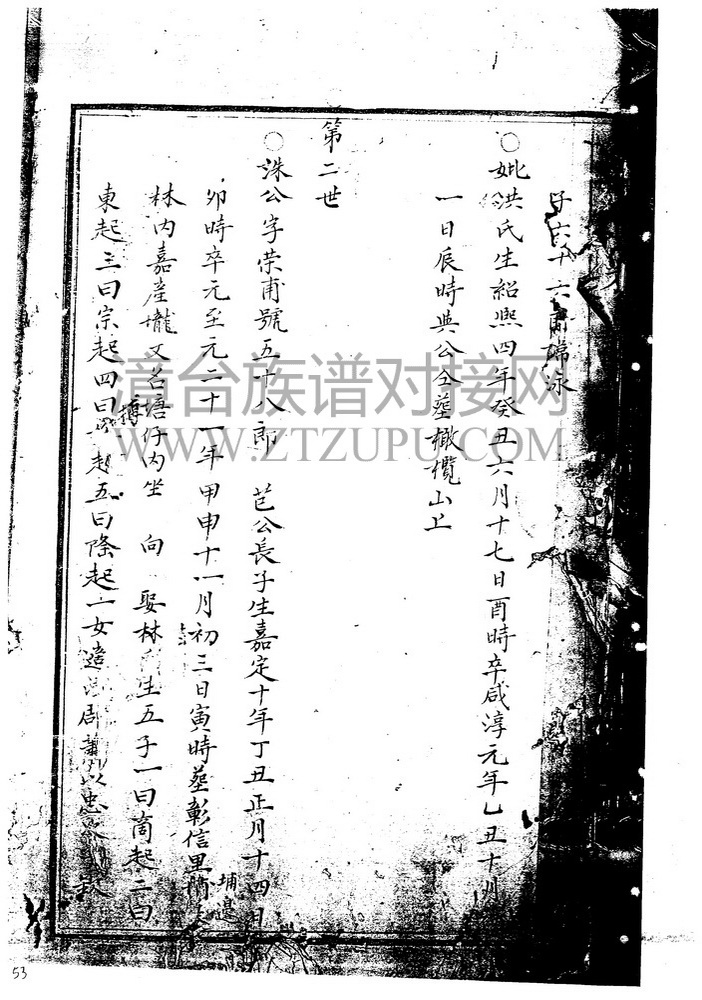 子六十六
○妣洪氏生紹熙四年癸丑六月十七日酉時卒咸淳元年乙丑十月
一日辰時與公仝塟橄欖山上
第二世
○洙公字荣甫號五十八郎 芑公長子生嘉定十年丁丑正月十四日
卯時卒元至元二十一年甲申十一月初三日寅時塟彰信里
埔邊
林内嘉産壠又名塘仔内坐 向 娶林氏生五子一曰商起二曰
東起三曰宗起四曰 起五曰隆起一女適
漳台族谱对接网
WWW.ZTZUPU.COM
53